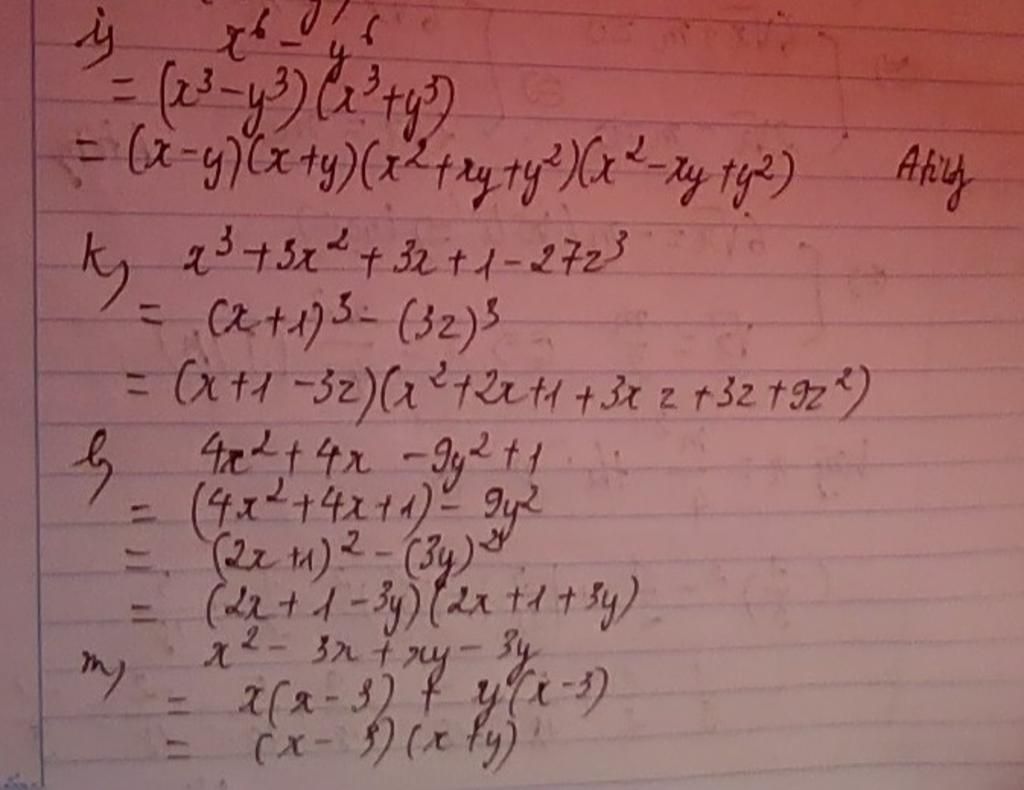 i, x⁶ - y⁶
= (x³-y³)(x³+y³)
= (x-y)(x+y)(x²+xy+y²)(x²-xy+y²)
k, x³+3x²+3x+1-27z³
= (x+1)³- (3z)³
= (x+1-3z)(x²+2x+1+3xz+3z+9z²)
l, 4x²+4x -9y²+1
= (4x²+4x+1)- 9y²
= (2x+1)²-(3y)²
= (2x+1-3y)(2x+1+3y)
m, x²- 3x+xy-3y
= x(x-3) + y(x-3)
= (x-3)(x+y)